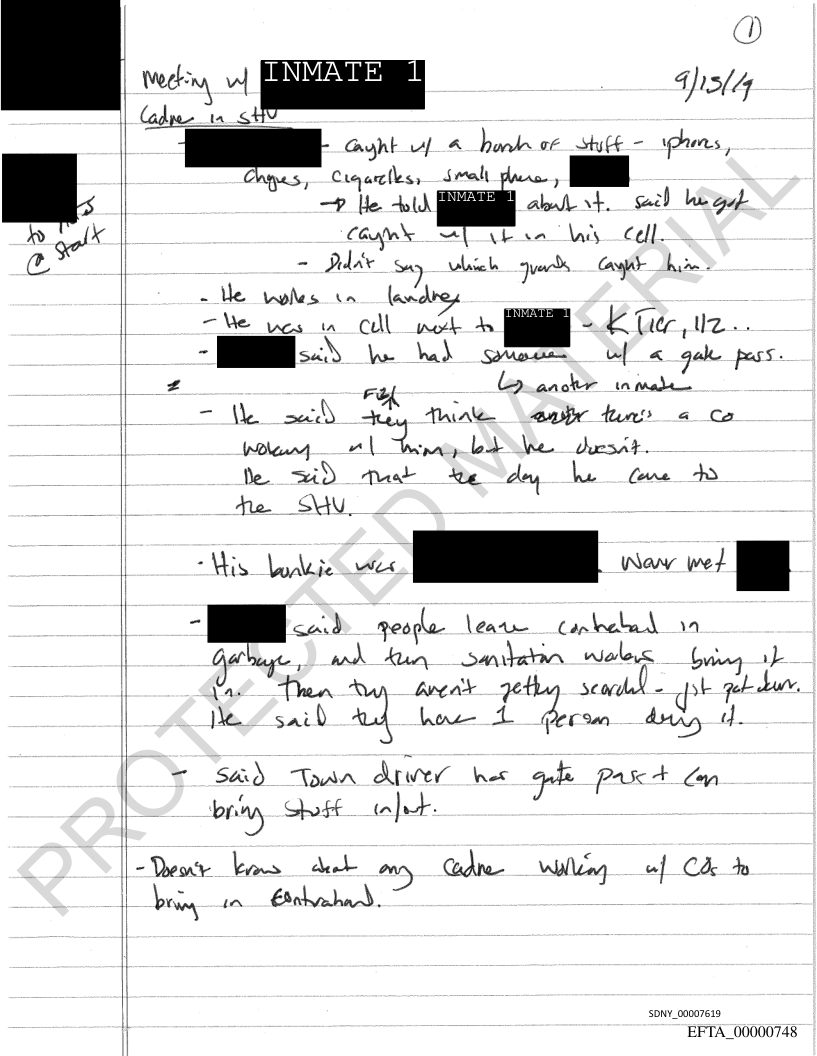 1
Meeting w/ INMATE 1 9/13/19
Cadre in SHU
- caught w/ a bunch of stuff - iphones,
cigarettes, small phone,
→ He told INMATE 1 about it. said he got
caught w/ it in his cell.
to
@ start
- Didn't say which guards caught him.
- He works in laundry
- He was in cell next to INMATE 1 - K Tier, 112..
- said he had someone w/ a gate pass.
↳ another inmate
- He said they think there's a CO
working w/ him, but he doesn't.
He said that the day he came to
the SHU.
- His bunkie was . Never met
- said people leave contraband in
garbage, and then sanitation workers bring it
in. Then they aren't getting searched - jst pat down.
He said they have 1 person doing it.
- Said Town driver has gate pass + can
bring stuff in/out.
- Doesn't know about any Cadre working w/ COs to
bring in contraband.
PROTECTED MATERIAL
SDNY_00007619
EFTA_00000748